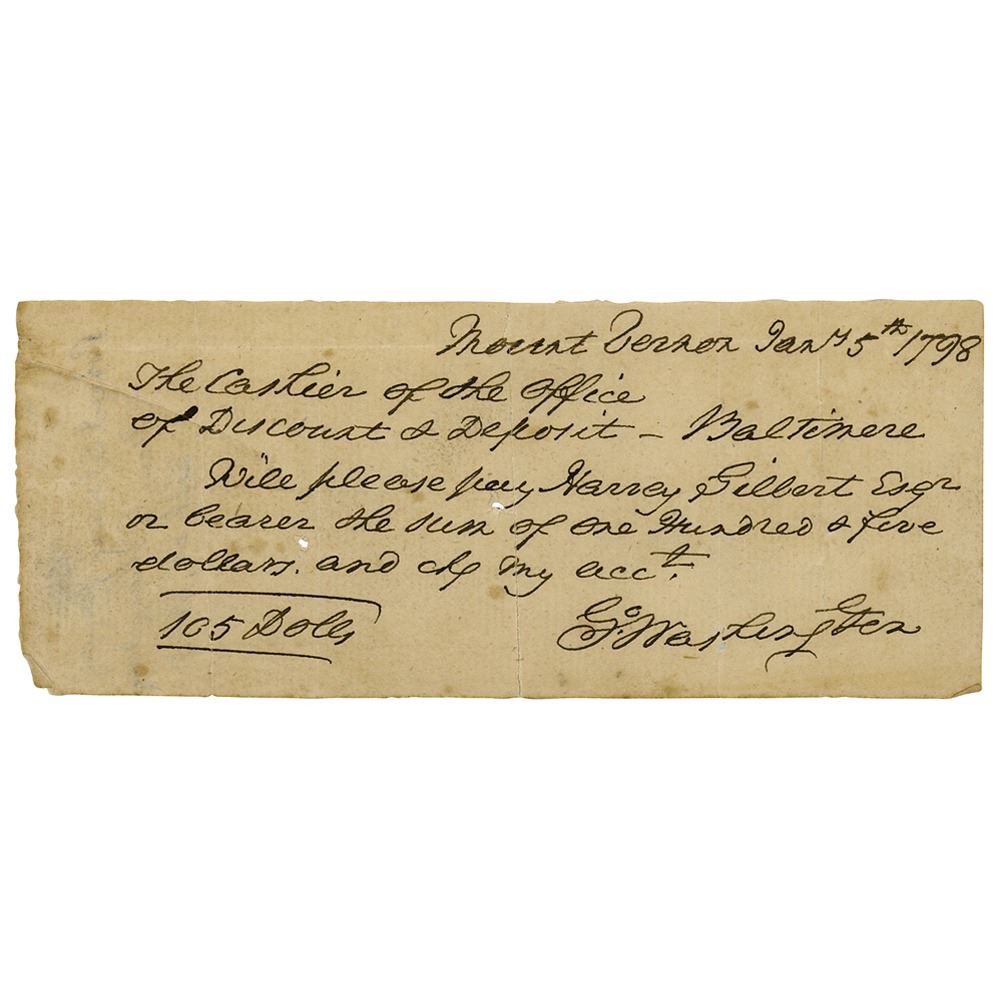 Mount Vernon Jany 5th 1798
The Cashier of the Office
of Discount & Deposit – Baltimore
Will please pay Harvey Gilbert Esqr
or bearer the sum of One Hundred & five
dollars. and chg my acct.
105 Dolls
Go. Washington